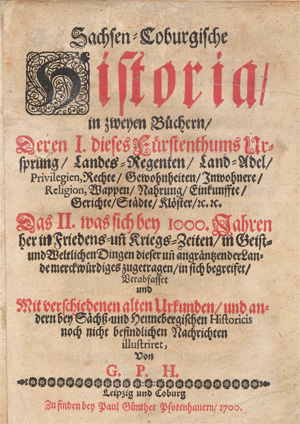 Sachsen-Coburgische
Historia/
in zweyen Büchern/
Deren I. dieses Fürstenthums Ur-
sprung/ Landes-Regenten/ Land-Adel/
Privilegien, Rechte/ Gewohnheiten/ Inwohnere/
Religion, Wappen/ Nahrung/ Einkunffte/
Gerichte/ Städte/ Klöster/ ꝛc. ꝛc.
Das II. was sich bey 1000. Jahren
her in Friedens- uñ Kriegs-Zeiten/ in Geist-
und Weltlichen Dingen dieser uñ angränzender Lan-
de merckwürdiges zugetragen/ in sich begreifet/
Verabfasset
und
Mit verschiedenen alten Urkunden/ und an-
dern bey Sächß- und Hennebergischen Historicis
noch nicht befindlichen Nachrichten
illustriret,
Von
G. P. H.
Leipzig und Coburg
Zu finden bey Paul Günther Pfotenhauern/ 1700.